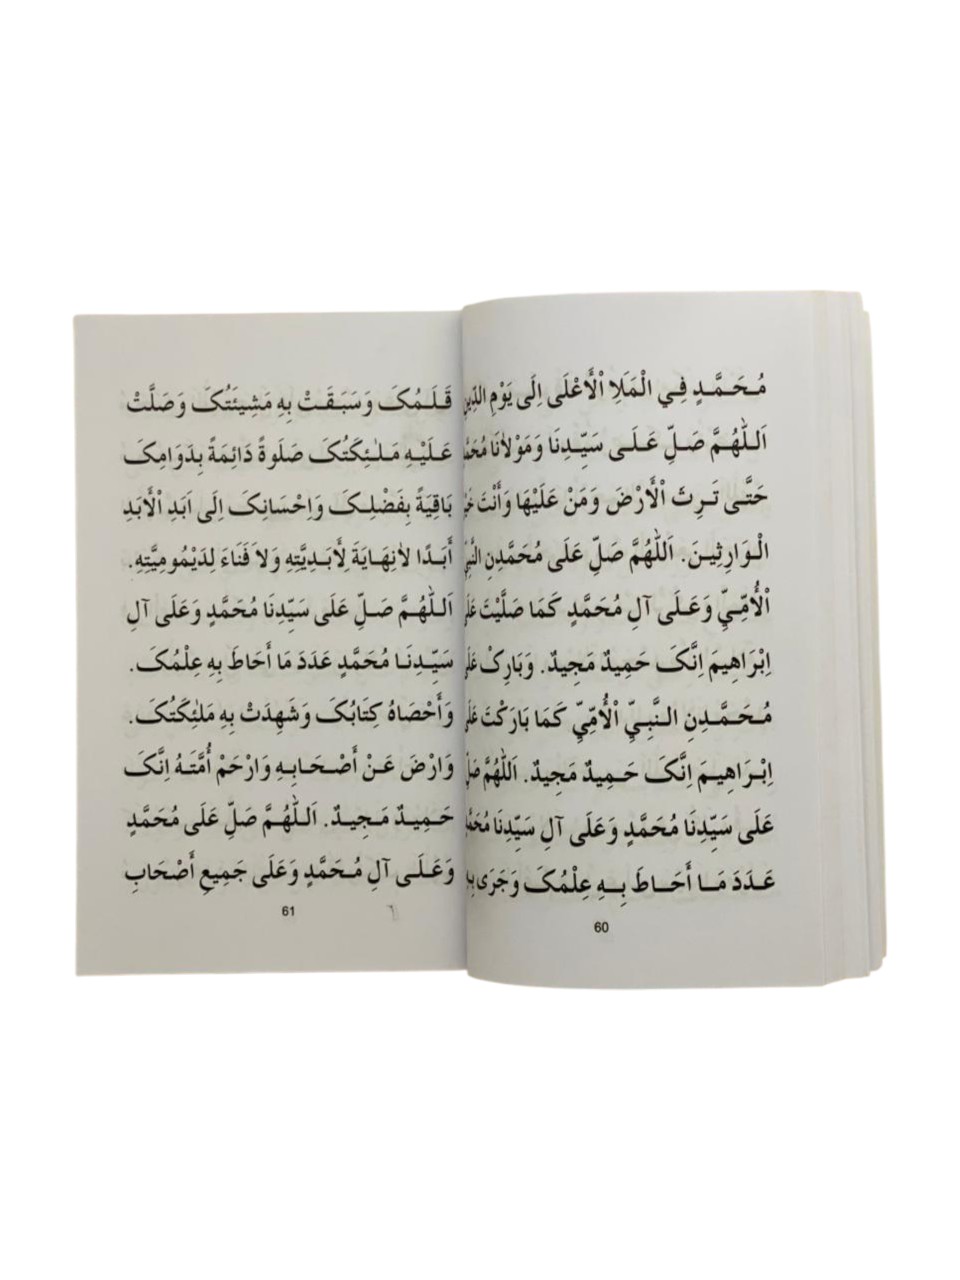 مُحَمَّدٍ فِي الْمَلَاِ الْأَعْلَى اِلَى يَوْمِ الدِّينِ
اَللّٰهُمَّ صَلِّ عَلَى سَيِّدِنَا وَمَوْلَانَا
حَتَّى تَرِثَ الْأَرْضَ وَمَنْ عَلَيْهَا وَأَنْتَ
الْوَارِثِينَ. اَللّٰهُمَّ صَلِّ عَلَى مُحَمَّدِنِ
الْأُمِّيِّ وَعَلَى آلِ مُحَمَّدٍ كَمَا صَلَّيْتَ
اِبْرَاهِيمَ اِنَّكَ حَمِيدٌ مَجِيدٌ. وَبَارِكْ
مُحَمَّدِنِ النَّبِيِّ الْأُمِّيِّ كَمَا بَارَكْتَ
اِبْرَاهِيمَ اِنَّكَ حَمِيدٌ مَجِيدٌ. اَللّٰهُمَّ
عَلَى سَيِّدِنَا مُحَمَّدٍ وَعَلَى آلِ سَيِّدِنَا
عَدَدَ مَا أَحَاطَ بِهِ عِلْمُكَ وَجَرَى
60
قَلَمُكَ وَسَبَقَتْ بِهِ مَشِيئَتُكَ وَصَلَّتْ
عَلَيْهِ مَلٰئِكَتُكَ صَلَوةً دَائِمَةً بِدَوَامِكَ
بَاقِيَةً بِفَضْلِكَ وَاِحْسَانِكَ اِلَى اَبَدِ الْأَبَدِ
أَبَدًا لاَنِهَايَةَ لِأَبَدِيَّتِهِ وَلاَ فَنَاءَ لِدَيْمُومِيَّتِهِ.
اَللّٰهُمَّ صَلِّ عَلَى سَيِّدِنَا مُحَمَّدٍ وَعَلَى آلِ
سَيِّدِنَا مُحَمَّدٍ عَدَدَ مَا أَحَاطَ بِهِ عِلْمُكَ.
وَأَحْصَاهُ كِتَابُكَ وَشَهِدَتْ بِهِ مَلٰئِكَتُكَ.
وَارْضَ عَنْ أَصْحَابِهِ وَارْحَمْ أُمَّتَهُ اِنَّكَ
حَمِيدٌ مَجِيدٌ. اَللّٰهُمَّ صَلِّ عَلَى مُحَمَّدٍ
وَعَلَى آلِ مُحَمَّدٍ وَعَلَى جَمِيعِ أَصْحَابِ
61